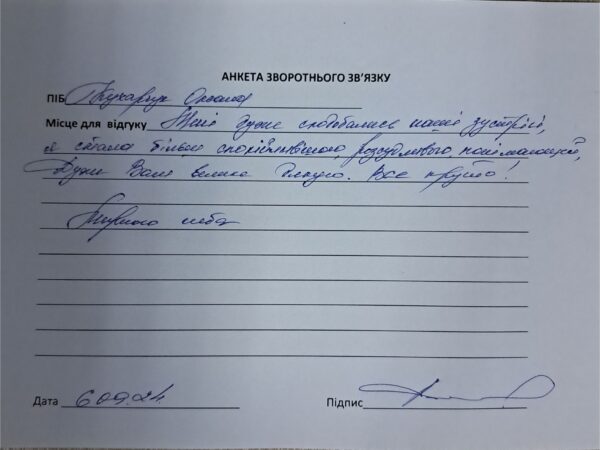 АНКЕТА ЗВОРОТНЬОГО ЗВ'ЯЗКУ
ПІБ Оксана
Місце для відгуку Мені дуже сподобались наші зустрічі,
я стала більш спокійнішою, розсудливою,
Дуже Вам велике Дякую. Все круто!
Мирного неба
Дата 6.09.24.
Підпис